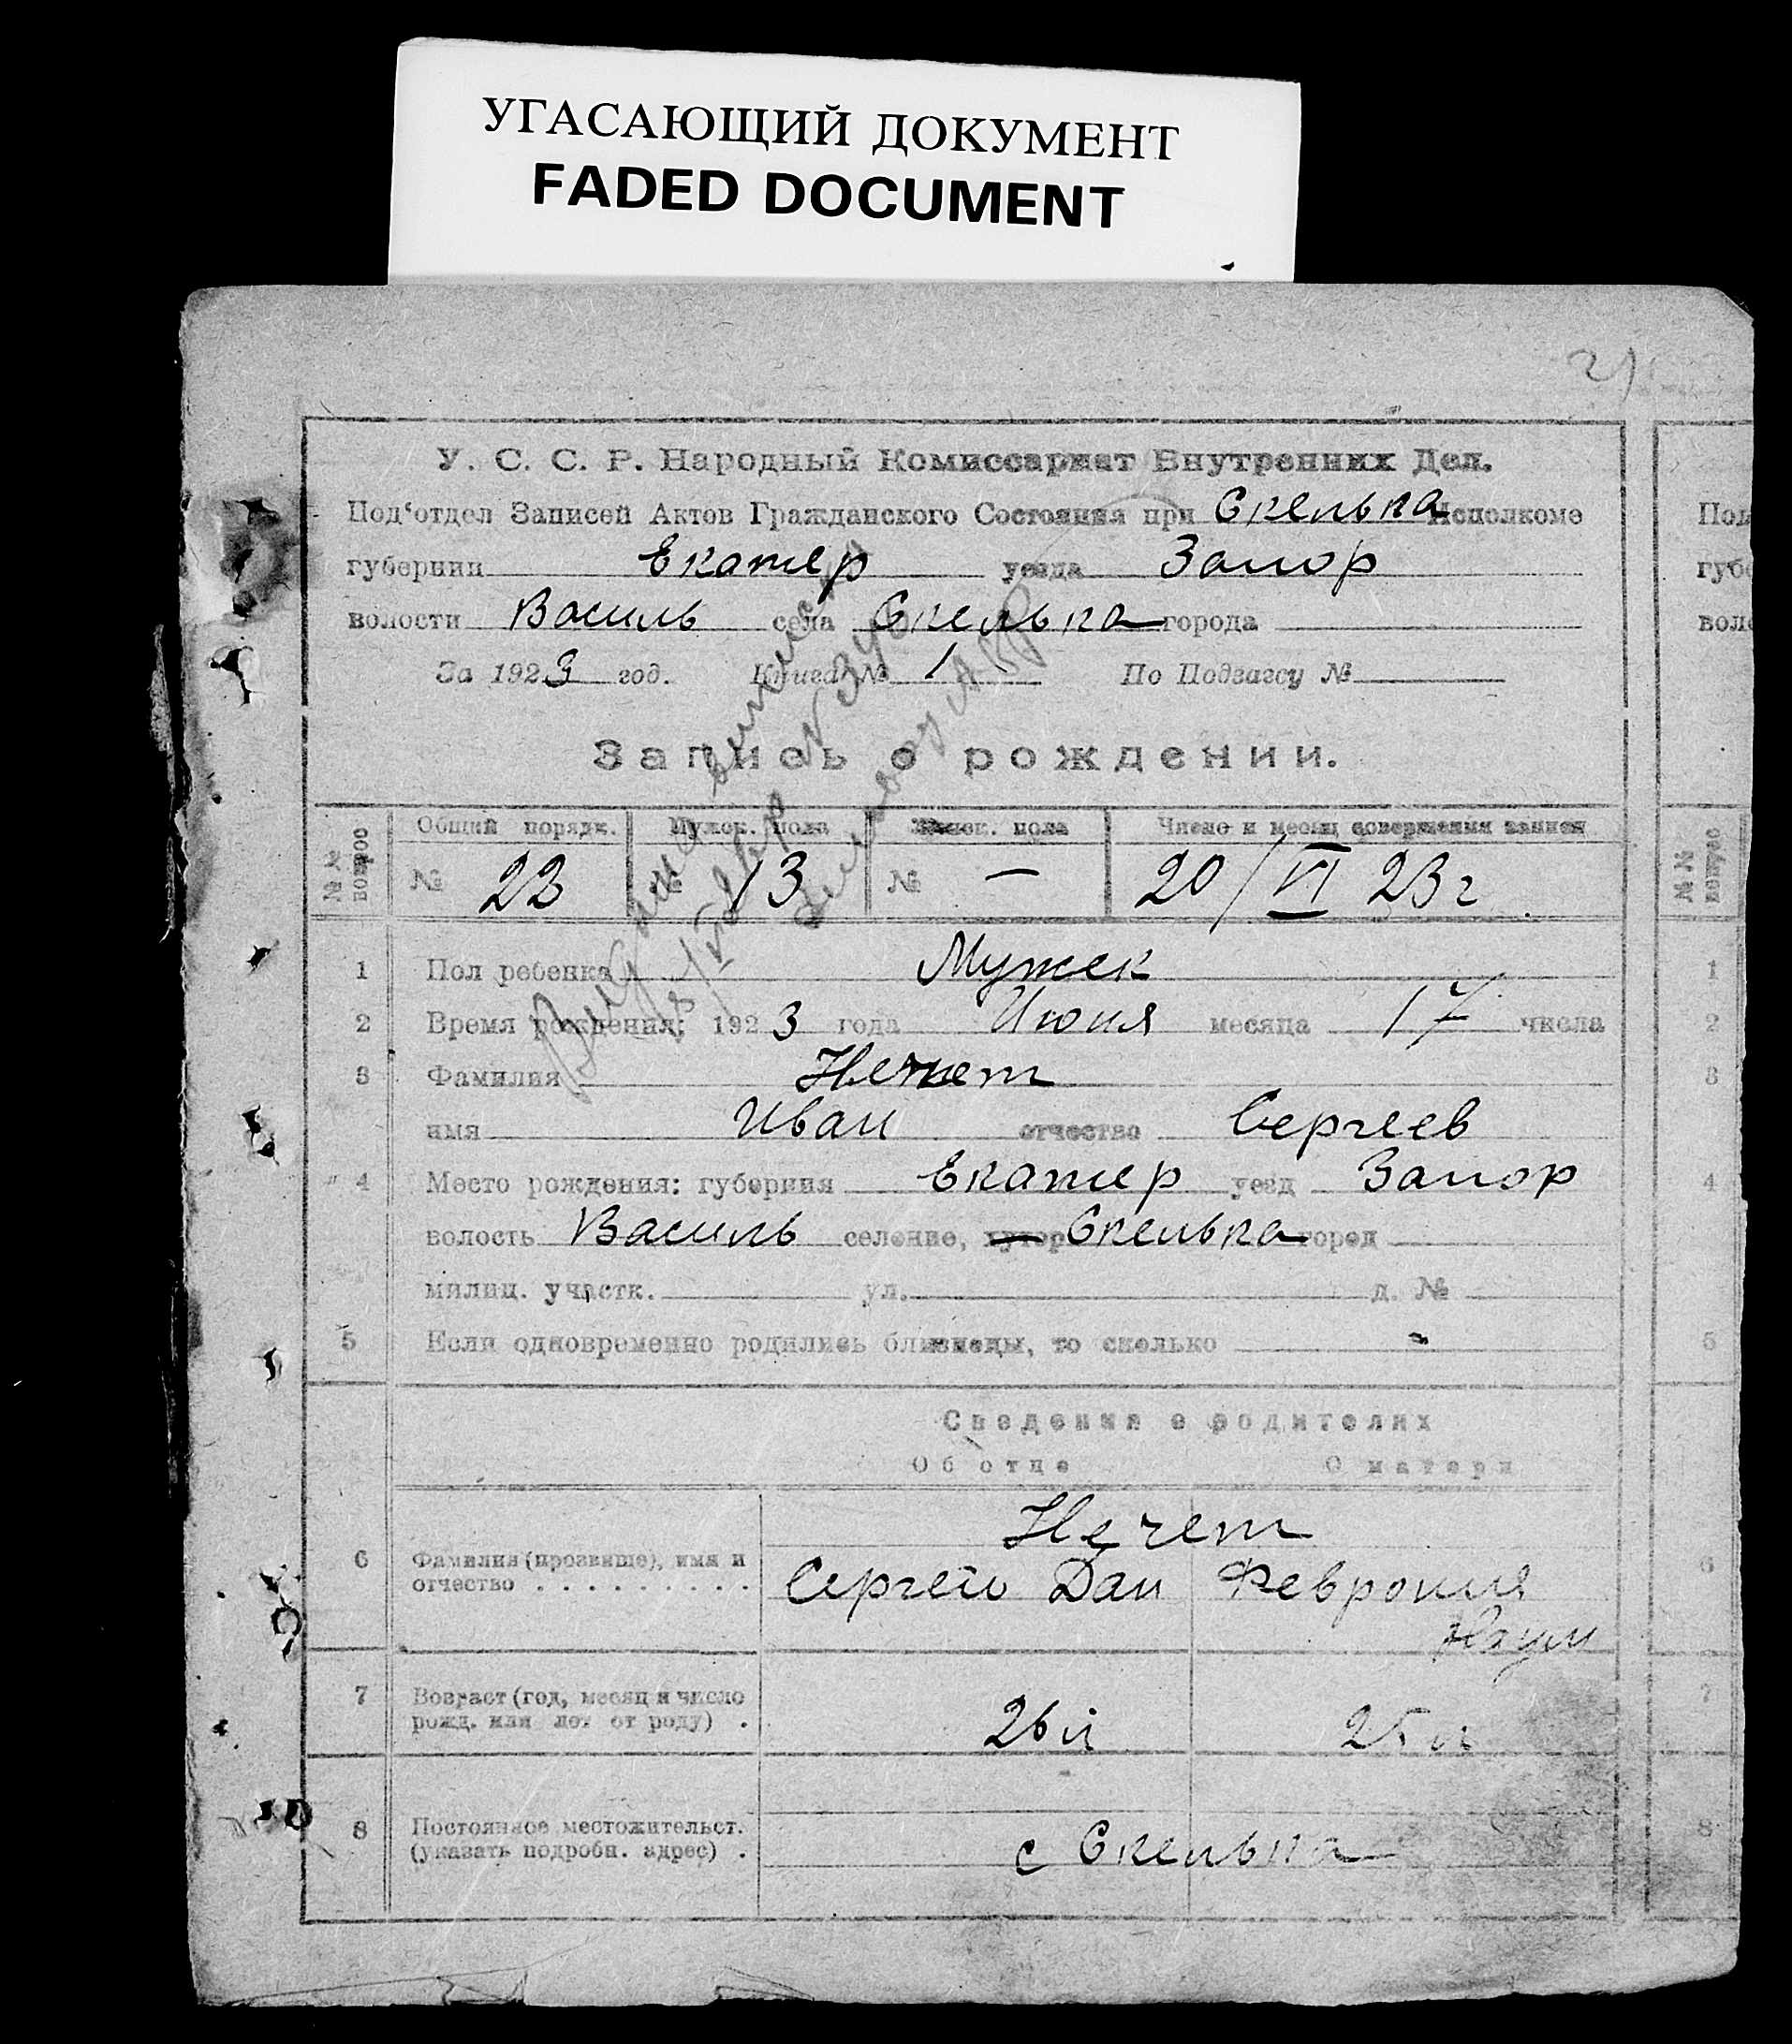 УГАСАЮЩИЙ ДОКУМЕНТ
FADED DOCUMENT
У. С. С. Р. Народный Комиссариат Внутренних Дел.
Под‘отдел Записей Актов Гражданского Состояния при Скелька Исполкоме
губернии Екатер уезда Запор
волости Василь села Скелька города
За 1923 год. Книга № 1 По Подзагсу №
Запись о рождении.
№ № вопрос Общий порядк. Мужск. пола Женск. пола Число и месяц совершения записи
№ 22 № 13 № — 20/VI 23 г
1 Пол ребенка Мужск
2 Время рождения: 1923 года Июня месяца 17 числа
3 Фамилия Нечет
имя Иван отчество Сергеев
4 Место рождения: губерния Екатер уезд Запор
волость Василь селение, хутор Скелька город
милиц. участк. ул. д. №
5 Если одновременно родились близнецы, то сколько -
Сведения о родителях
Об отце О матери
Нечет
6 Фамилия (прозвище), имя и
отчество . . . . . . . . . Сергей Дан Феврония
Наум
7 Возраст (год, месяц и число
рожд. или лет от роду) . 26 л 25 л
8 Постоянное местожительст.
(указать подробн. адрес) . с Скелька